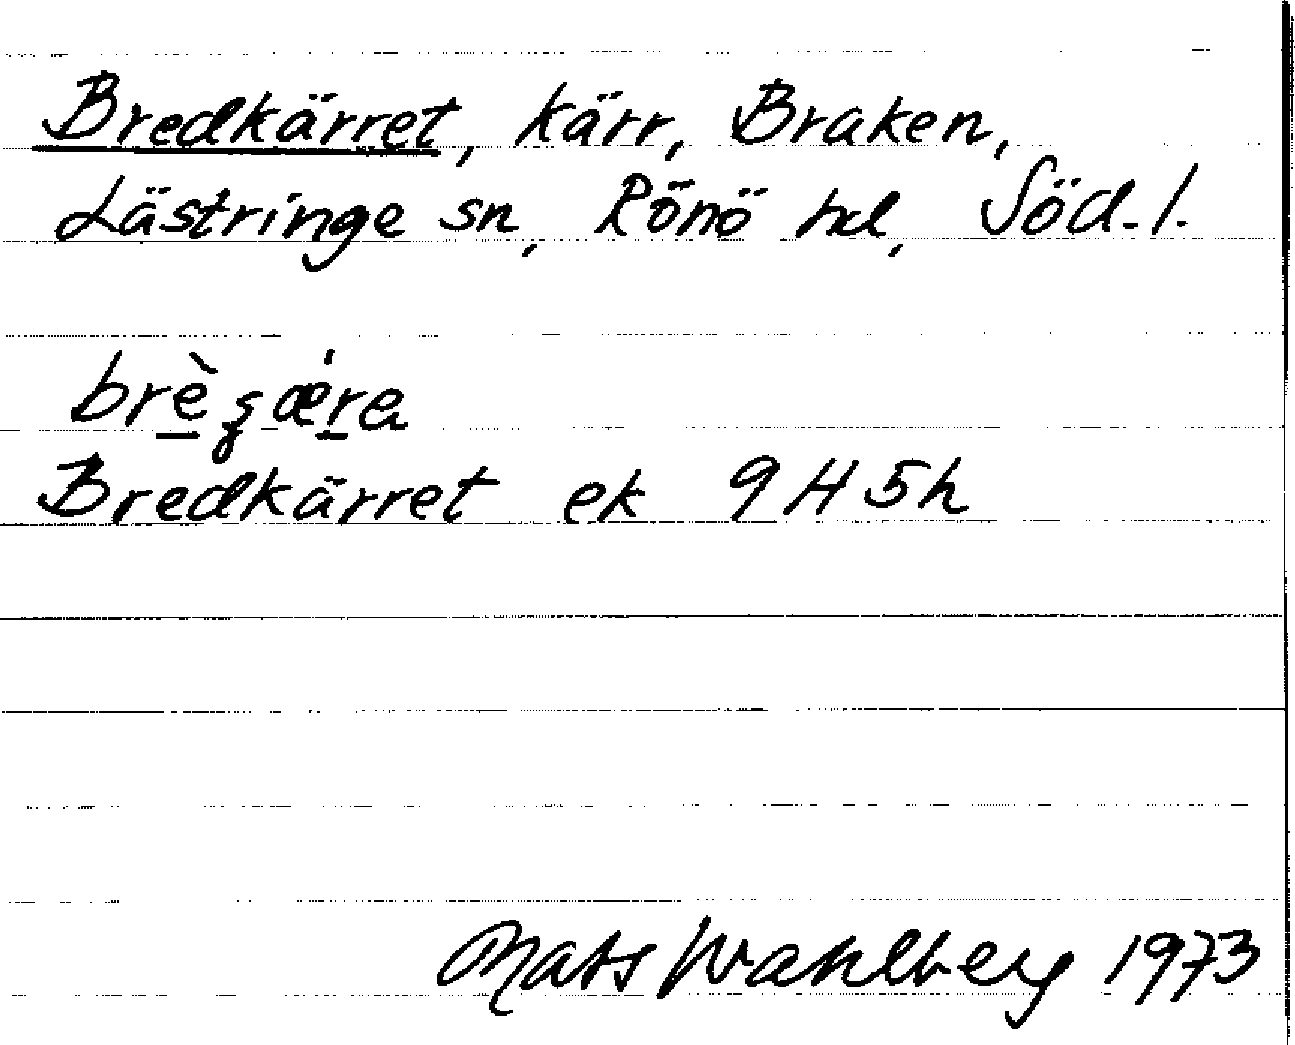 Bredkärret, kärr, Braken,
Lästringe sn, Rönö hd, Söd. l.
Bredkärret ek 9H5h
Mats Wahlberg 1973